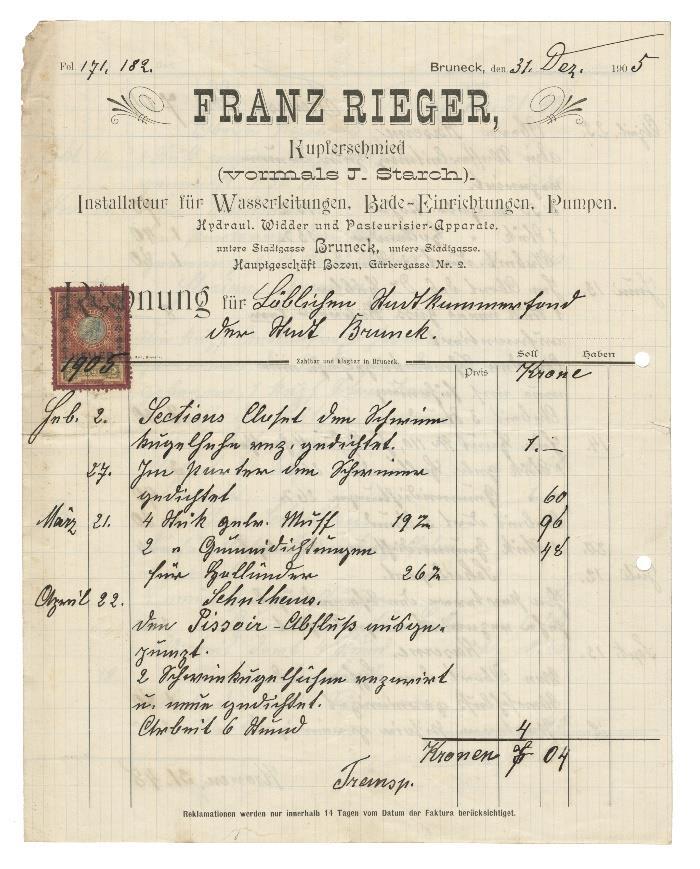 Fol. 171. 182.
Bruneck, den 31. Dez. 1905
FRANZ RIEGER,
Kupferschmied
(vormals J. Starch).
Installateur für Wasserleitungen, Bade-Einrichtungen, Pumpen.
Hydraul. Widder und Pasteurisier-Apparate.
untere Stadtgasse Bruneck, untere Stadtgasse.
Hauptgeschäft Bozen, Gärbergasse Nr. 2.
Rechnung für Löblichen Stadtkammerfond
der Stadt Bruneck.
1905
Zahlbar und klagbar in Bruneck.
Soll Haben
Preis Krone
Feb. 2. Sections Closet den Schwim
kugelhahn rep. gedichtet. 1.—
27. Im parter den Schwimer
gedichtet 60
März 21. 4 Stük galv. Muff 96
2 " Gummidichtungen 48
für Holländer
April 22. Schulhaus.
den Pissoir-Abfluß ausge-
pumpt.
2 Schwimkugelhähne reparirt
u. neue gedichtet.
Arbeit 6 Stund 4
Kronen 7 04
Transp.
Reklamationen werden nur innerhalb 14 Tagen vom Datum der Faktura berücksichtiget.